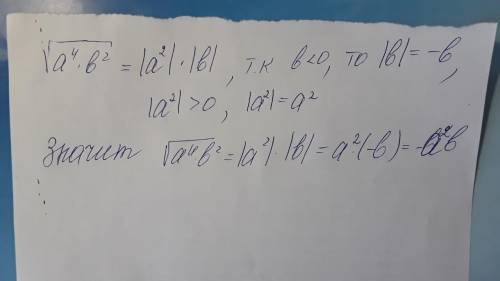 √(a⁴·b²) = |a²|·|b| , т.к b<0, то |b| = -b,
|a²|>0, |a²| = a²
Значит √(a⁴b²) = |a²|·|b| = a²(-b) = -a²b